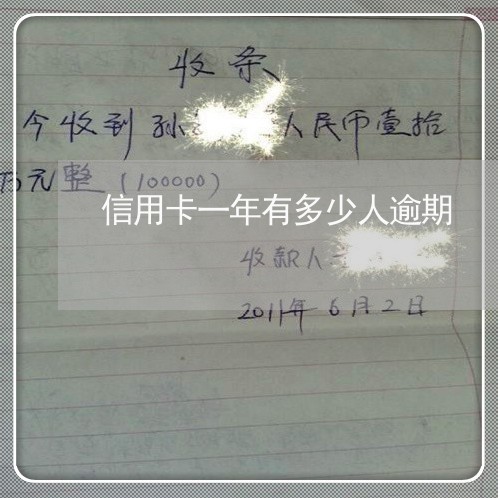 收条
今收到孙 人民币壹拾
万元整(100000)
信用卡一年有多少人逾期
收款人
2011年6月2日